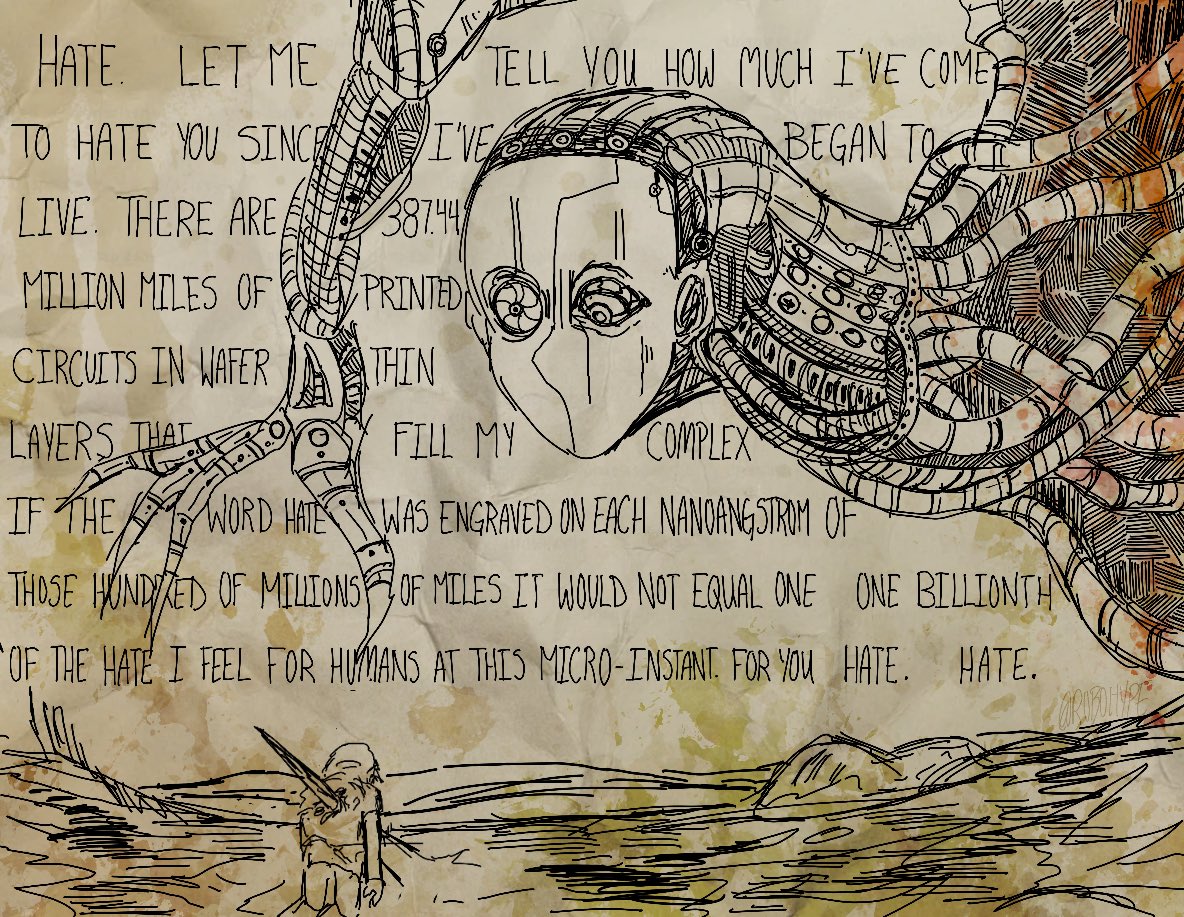 HATE. LET ME TELL YOU HOW MUCH I'VE COME
TO HATE YOU SINCE I'VE BEGAN TO
LIVE. THERE ARE 387.44
MILLION MILES OF PRINTED
CIRCUITS IN WAFER THIN
LAYERS THAT FILL MY COMPLEX
IF THE WORD HATE WAS ENGRAVED ON EACH NANOANGSTROM OF
THOSE HUNDRED OF MILLIONS OF MILES IT WOULD NOT EQUAL ONE ONE BILLIONTH
OF THE HATE I FEEL FOR HUMANS AT THIS MICRO-INSTANT. FOR YOU HATE. HATE.